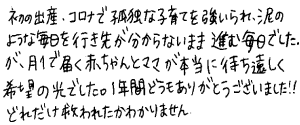 初の出産、コロナで孤独な子育てを強いられ、泥の
ような毎日を行き先が分からないまま進む毎日でした。
が、月1で届く赤ちゃんとママが本当に待ち遠しく
希望の光でした。1年間どうもありがとうございました!!
どれだけ救われたかわかりません